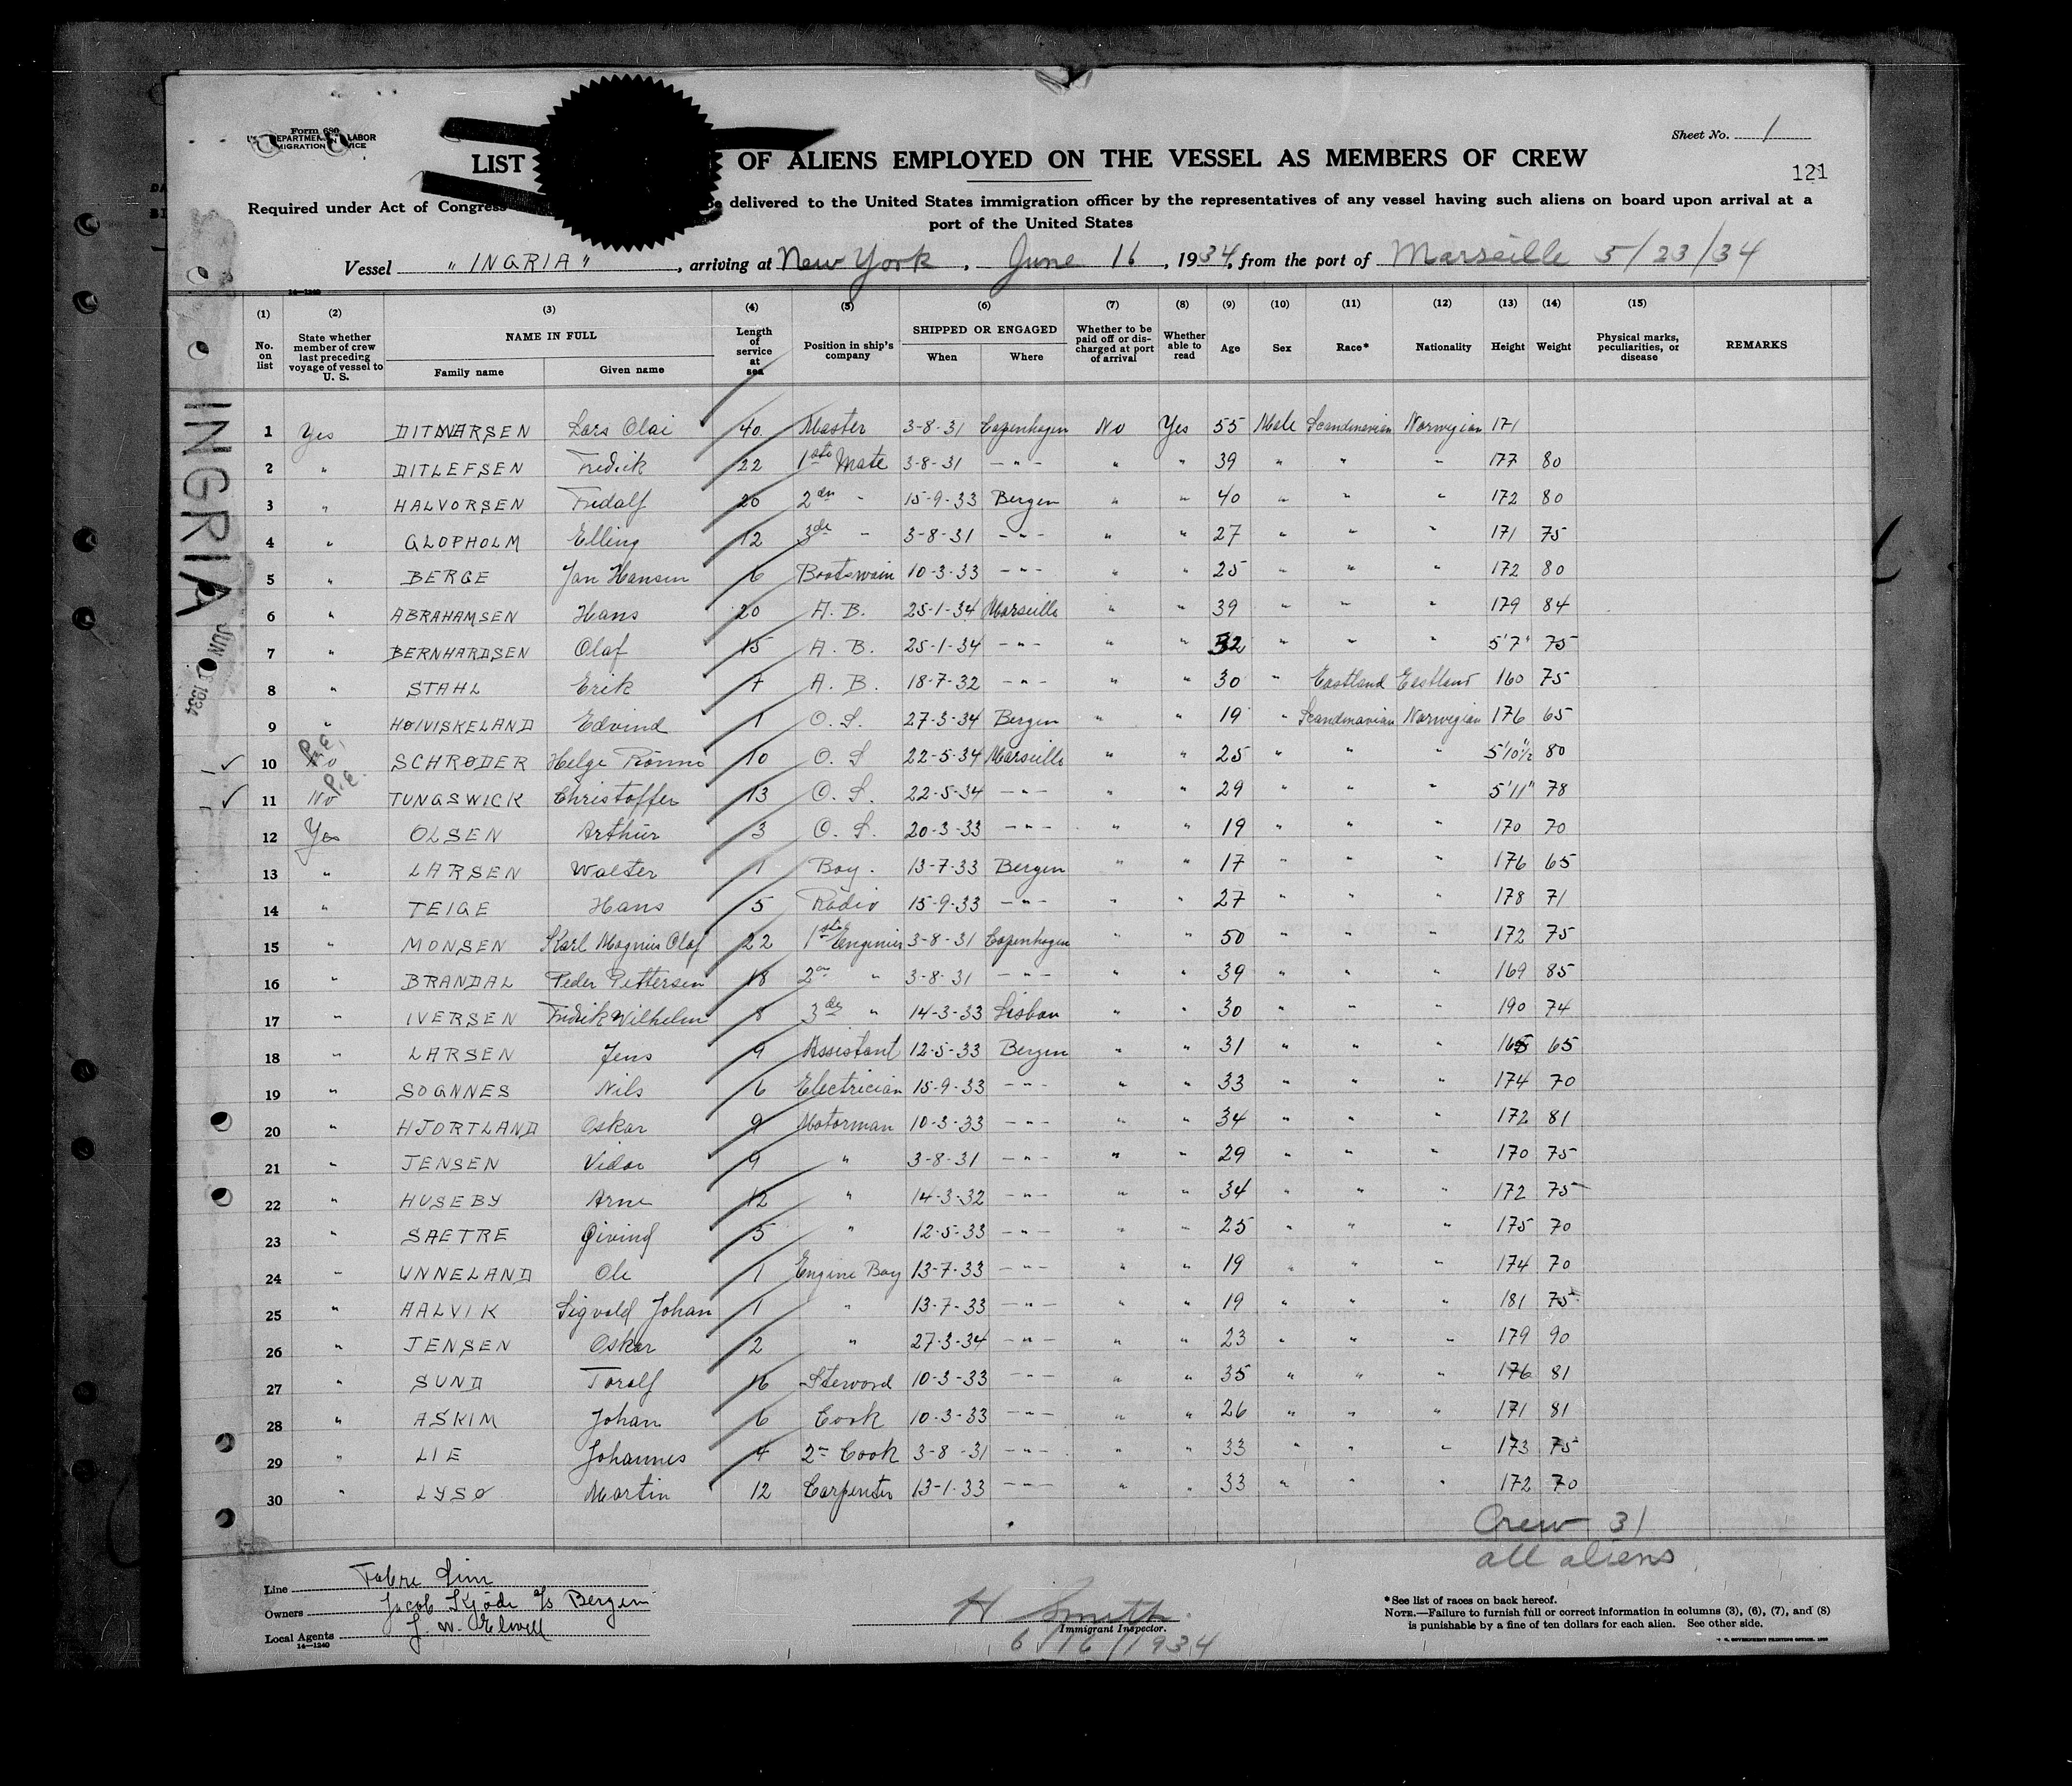 Form 680
U.S. DEPARTMENT OF LABOR
IMMIGRATION SERVICE
Sheet No. 1
LIST OF ALIENS EMPLOYED ON THE VESSEL AS MEMBERS OF CREW
121
Required under Act of Congress delivered to the United States immigration officer by the representatives of any vessel having such aliens on board upon arrival at a
port of the United States
Vessel "INGRIA", arriving at New York, June 16, 1934, from the port of Marseille 5/23/34
14—1240
(1) (2) (3) (4) (5) (6) (7) (8) (9) (10) (11) (12) (13) (14) (15)
No. on list State whether member of crew last preceding voyage of vessel to U. S. NAME IN FULL Family name Given name Length of service at sea Position in ship's company SHIPPED OR ENGAGED When Where Whether to be paid off or discharged at port of arrival Whether able to read Age Sex Race* Nationality Height Weight Physical marks, peculiarities, or disease REMARKS
1 Yes DITMARSEN Lars Olai 40 Master 3-8-31 Copenhagen No Yes 55 Male Scandinavian Norwegian 171
2 " DITLEFSEN Fredrik 22 1ste Mate 3-8-31 -"- " " 39 " " " 177 80
3 " HALVORSEN Fridalf 20 2den " 15-9-33 Bergen " " 40 " " " 172 80
4 " GLOPHOLM Elling 12 3de " 3-8-31 -"- " " 27 " " " 171 75
5 " BERGE Jan Hansen 6 Bootswain 10-3-33 -"- " " 25 " " " 172 80
6 " ABRAHAMSEN Hans 20 A.B. 25-1-34 Marseille " " 39 " " " 179 84
7 " BERNHARDSEN Olaf 15 A.B. 25-1-34 -"- " " 32 " " " 5'7" 75
8 " STAHL Erik 7 A.B. 18-7-32 -"- " " 30 " Eastland Eastland 160 75
9 " HØIVISKELAND Edvind 1 O.S. 27-3-34 Bergen " " 19 " Scandinavian Norwegian 176 65
P.E.
10 No SCHRØDER Helge Rönne 10 O.S 22-5-34 Marseille " " 25 " " " 5'10½" 80
P.E.
11 No TUNGSWICK Christoffer 13 O.S. 22-5-34 -"- " " 29 " " " 5'11" 78
12 Yes OLSEN Arthur 3 O.S. 20-3-33 -"- " " 19 " " " 170 70
13 " LARSEN Walter 1 Boy. 13-7-33 Bergen " " 17 " " " 176 65
14 " TEIGE Hans 5 Radio 15-9-33 -"- " " 27 " " " 178 71
15 " MONSEN Karl Magnus Olaf 22 1ste Enginier 3-8-31 Copenhagen " " 50 " " " 172 75
16 " BRANDAL Peder Pettersen 18 2en " 3-8-31 -"- " " 39 " " " 169 85
17 " IVERSEN Fredrik Wilhelm 8 3de " 14-3-33 Lisbon " " 30 " " " 190 74
18 " LARSEN Jens 9 Assistant 12-5-33 Bergen " " 31 " " " 165 65
19 " SOGNNES Nils 6 Electrician 15-9-33 -"- " " 33 " " " 174 70
20 " HJORTLAND Oskar 9 Motorman 10-3-33 -"- " " 34 " " " 172 81
21 " JENSEN Vidar 9 " 3-8-31 -"- " " 29 " " " 170 75
22 " HUSEBY Arne 12 " 14-3-32 -"- " " 34 " " " 172 75
23 " SAETRE Giving 5 " 12-5-33 -"- " " 25 " " " 175 70
24 " UNNELAND Ole 1 Engine Boy 13-7-33 -"- " " 19 " " " 174 70
25 " AALVIK Sigvald Johan 1 " 13-7-33 -"- " " 19 " " " 181 75
26 " JENSEN Oskar 2 " 27-3-34 -"- " " 23 " " " 179 90
27 " SUND Toralf 16 Steward 10-3-33 -"- " " 35 " " " 176 81
28 " ASKIM Johan 6 Cook 10-3-33 -"- " " 26 " " " 171 81
29 " LIE Johannes 4 2en Cook 3-8-31 -"- " " 33 " " " 173 75
30 " LYSØ Martin 12 Carpenter 13-1-33 -"- " " 33 " " " 172 70
Crew 31
all aliens
INGRIA
JUN 1934
Line Fabre Line
Owners Jacob Kjøde A/s Bergen
Local Agents J. W. Elwell
14—1240
H Smith
Immigrant Inspector.
6/16/1934
*See list of races on back hereof.
NOTE.—Failure to furnish full or correct information in columns (3), (6), (7), and (8)
is punishable by a fine of ten dollars for each alien. See other side.
U. S. GOVERNMENT PRINTING OFFICE